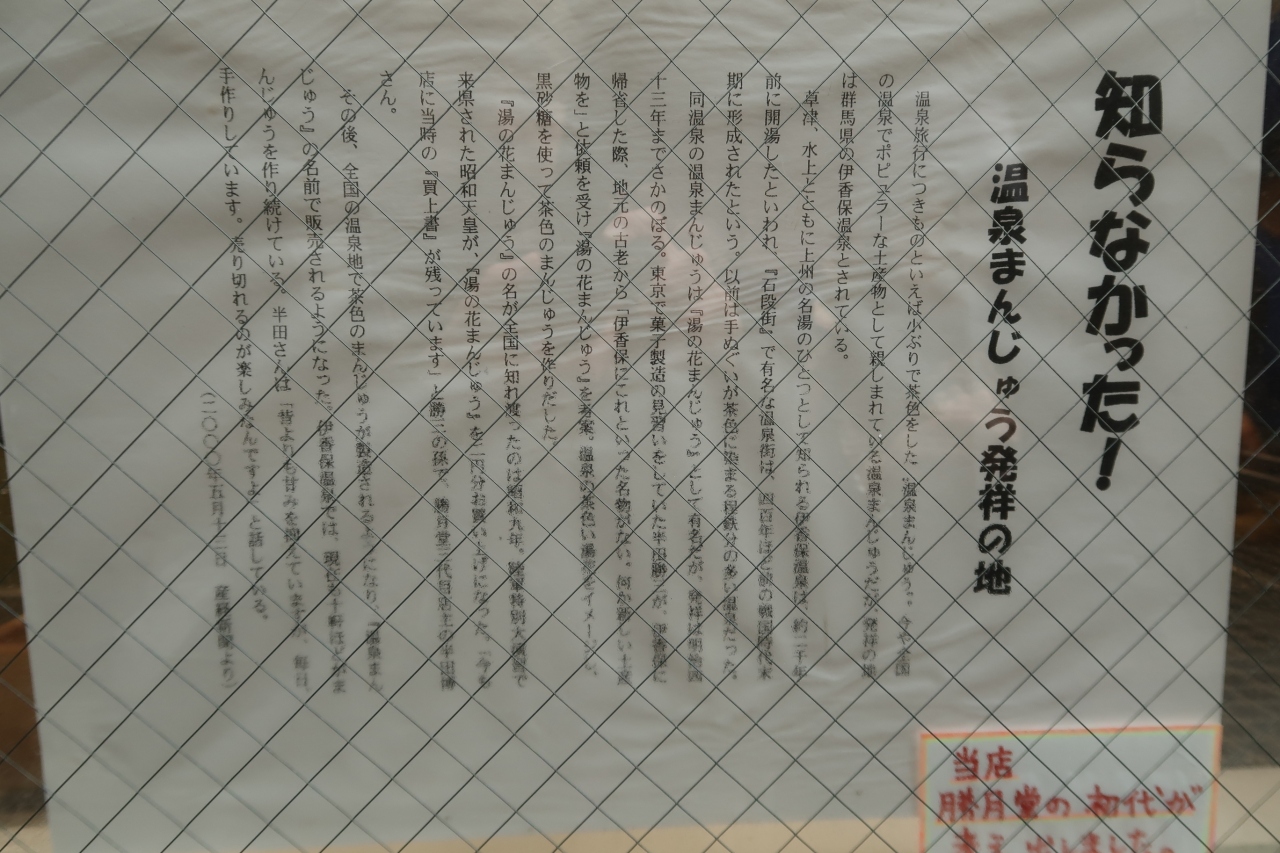 知らなかった！
温泉まんじゅう発祥の地
温泉旅行につきものといえば小ぶりで茶色をした〝温泉まんじゅう〟。今や全国
の温泉でポピュラーな土産物として親しまれている温泉まんじゅうだが、発祥の地
は群馬県の伊香保温泉とされている。
草津、水上とともに上州の名湯のひとつとして知られる伊香保温泉は、約二千年
前に開湯したといわれ、『石段街』で有名な温泉街は、四百年ほど前の戦国時代末
期に形成されたという。以前は手ぬぐいが茶色に染まる程鉄分の多い温泉だった。
同温泉の温泉まんじゅうは『湯の花まんじゅう』として有名だが、発祥は明治四
十三年までさかのぼる。東京で菓子製造の見習いをしていた半田勝三が、伊香保に
帰省した際、地元の古老から「伊香保にこれといった名物がない。何か新しい土産
物を」と依頼を受け『湯の花まんじゅう』を考案。温泉の茶色い湯花をイメージし、
黒砂糖を使って茶色のまんじゅうを作りだした。
『湯の花まんじゅう』の名が全国に知れ渡ったのは昭和九年。陸軍特別大演習で
来県された昭和天皇が、『湯の花まんじゅう』を二円分お買い上げになった。「今も
店に当時の『買上書』が残っています」と勝三の孫で、勝月堂三代目店主の半田博
さん。
その後、全国の温泉地で茶色のまんじゅうが製造されるようになり、『温泉まん
じゅう』の名前で販売されるようになった。伊香保温泉では、現在も十軒ほどがま
んじゅうを作り続けている。半田さんは「昔よりも甘みを抑えていますが、毎日、
手作りしています。売り切れるのが楽しみなんですよ」と話している。
（二〇〇〇年五月十二日　産経新聞より）
当店
勝月堂の初代が
考え出しました。